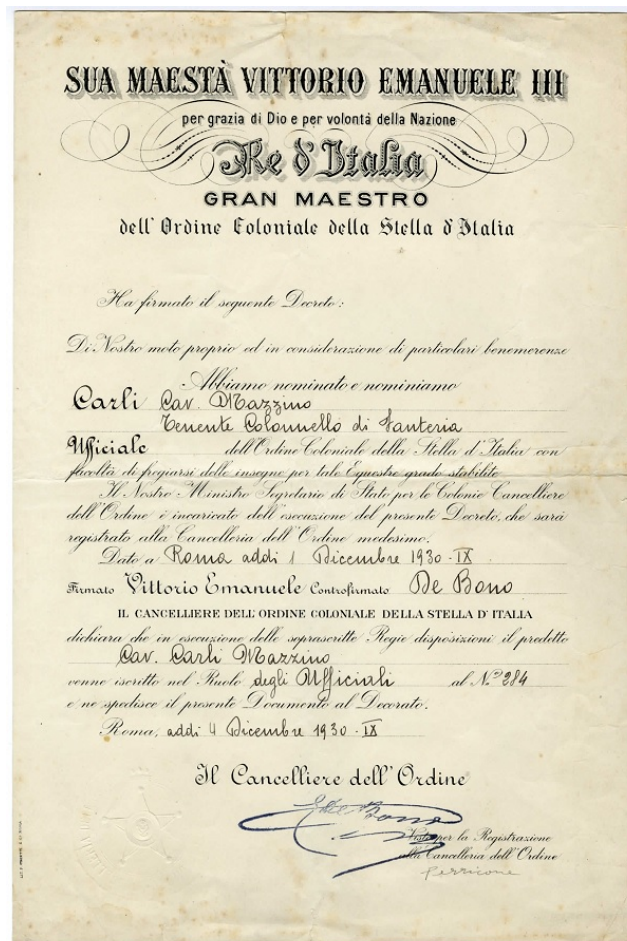 SUA MAESTÀ VITTORIO EMANUELE III
per grazia di Dio e per volontà della Nazione
Re d'Italia
GRAN MAESTRO
dell'Ordine Coloniale della Stella d'Italia
Ha firmato il seguente Decreto:
Di Nostro moto proprio ed in considerazione di particolari benemerenze
Abbiamo nominato e nominiamo
Carli Cav. Mazzino
Tenente Colonnello di Fanteria
Ufficiale dell'Ordine Coloniale della Stella d'Italia con
facoltà di fregiarsi delle insegne per tale Equestre grado stabilite
Il Nostro Ministro Segretario di Stato per le Colonie Cancelliere
dell'Ordine è incaricato dell'esecuzione del presente Decreto, che sarà
registrato alla Cancelleria dell'Ordine medesimo.
Dato a Roma addì 1 Dicembre 1930 - IX
Firmato Vittorio Emanuele Controfirmato De Bono
IL CANCELLIERE DELL'ORDINE COLONIALE DELLA STELLA D'ITALIA
dichiara che in esecuzione delle soprascritte Regie disposizioni il predetto
Cav. Carli Mazzino
venne iscritto nel Ruolo degli Ufficiali al N.º 284
e ne spedisce il presente Documento al Decorato.
Roma, addì 4 Dicembre 1930 - IX
Il Cancelliere dell'Ordine
De Bono
Visto per la Registrazione
alla Cancelleria dell'Ordine